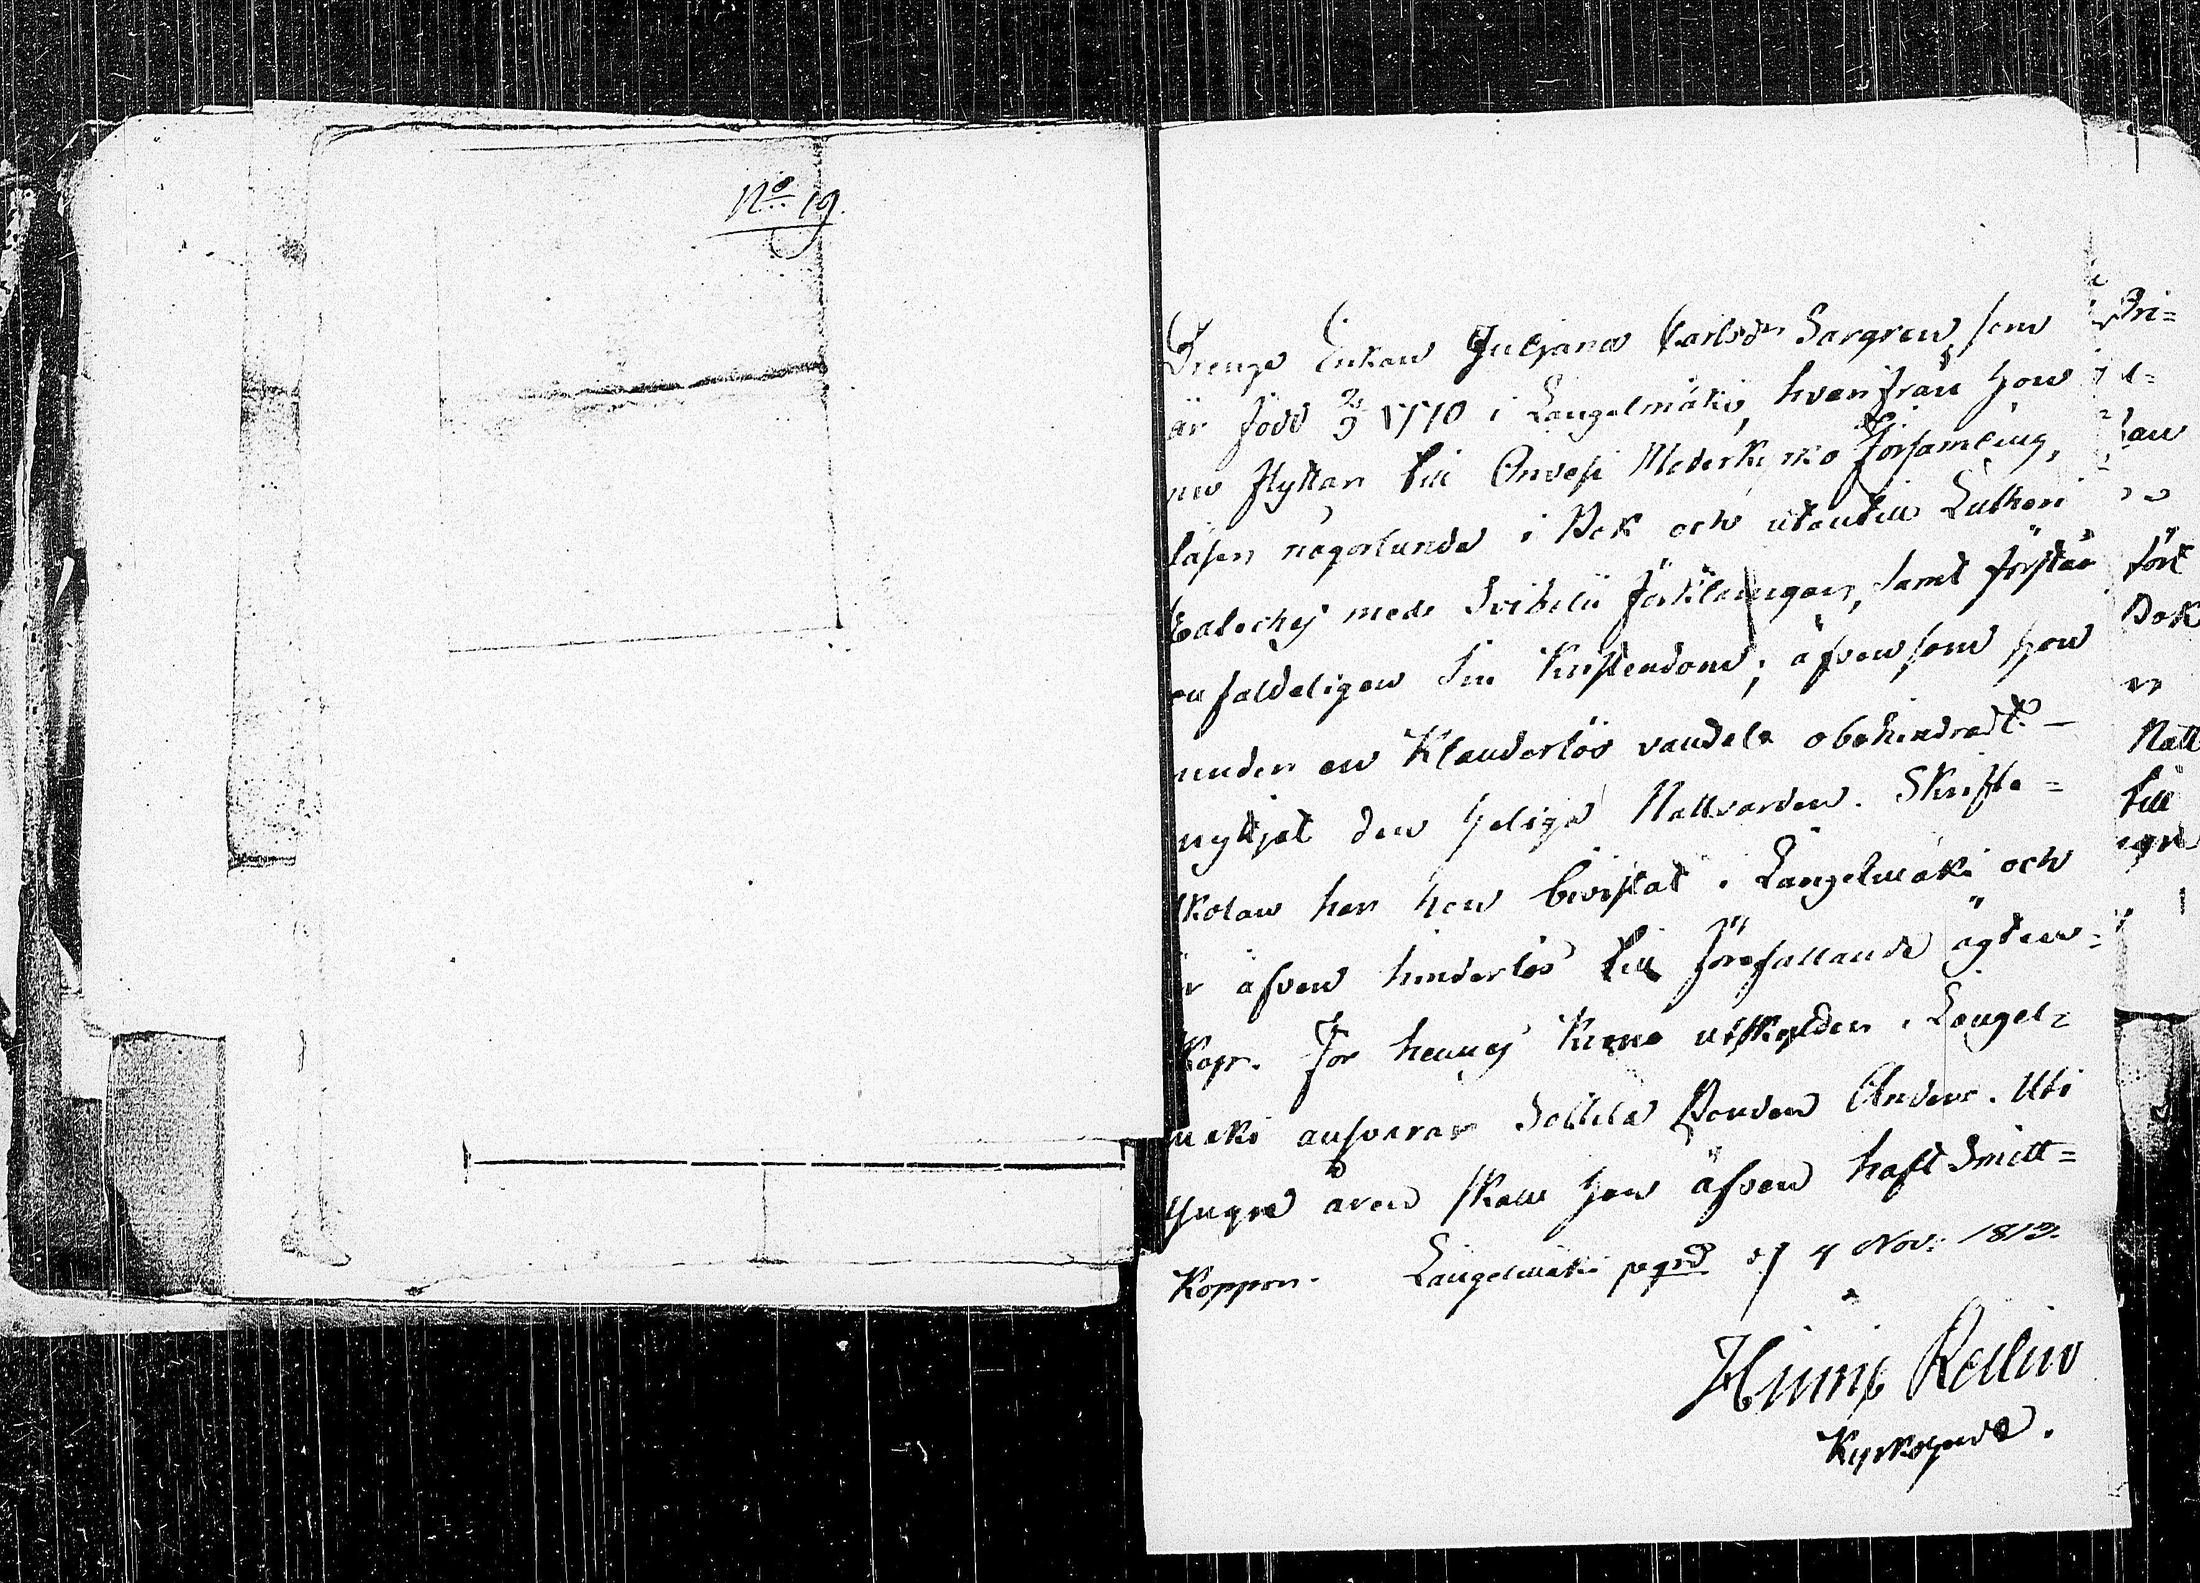 No 19.
Drenge Enkan Juljana Carlsdr Sargren, som
är född 2/9 1770 i Längelmäki, hvarifrån hon
nu flyttar till Orivesi Moderkyrko församling,
läser någorlunda i Bok och utantill Lutheri
Cateches med Svibelii förklaringar, samt förstår
enfaldeligen sin Kristendom; äfven som hon
under en Klanderlös vandel obehindradt
nyttjat den heliga Nattvarden. Skrifte=
skolan har hon bevistat i Längelmäki och
är äfven hinderlös till förefallande ägten=
skap. För hennes Krono utskylder i Längel=
mäki ansvarar Bonden Anders. Uti
yngre åren skall hon äfven haft Smitt=
Koppor. Längelmäki prgrd d 4 Nov: 1813.
Rellin
Kyrkoherde.
Bri=
fört
Bok
Natt
till